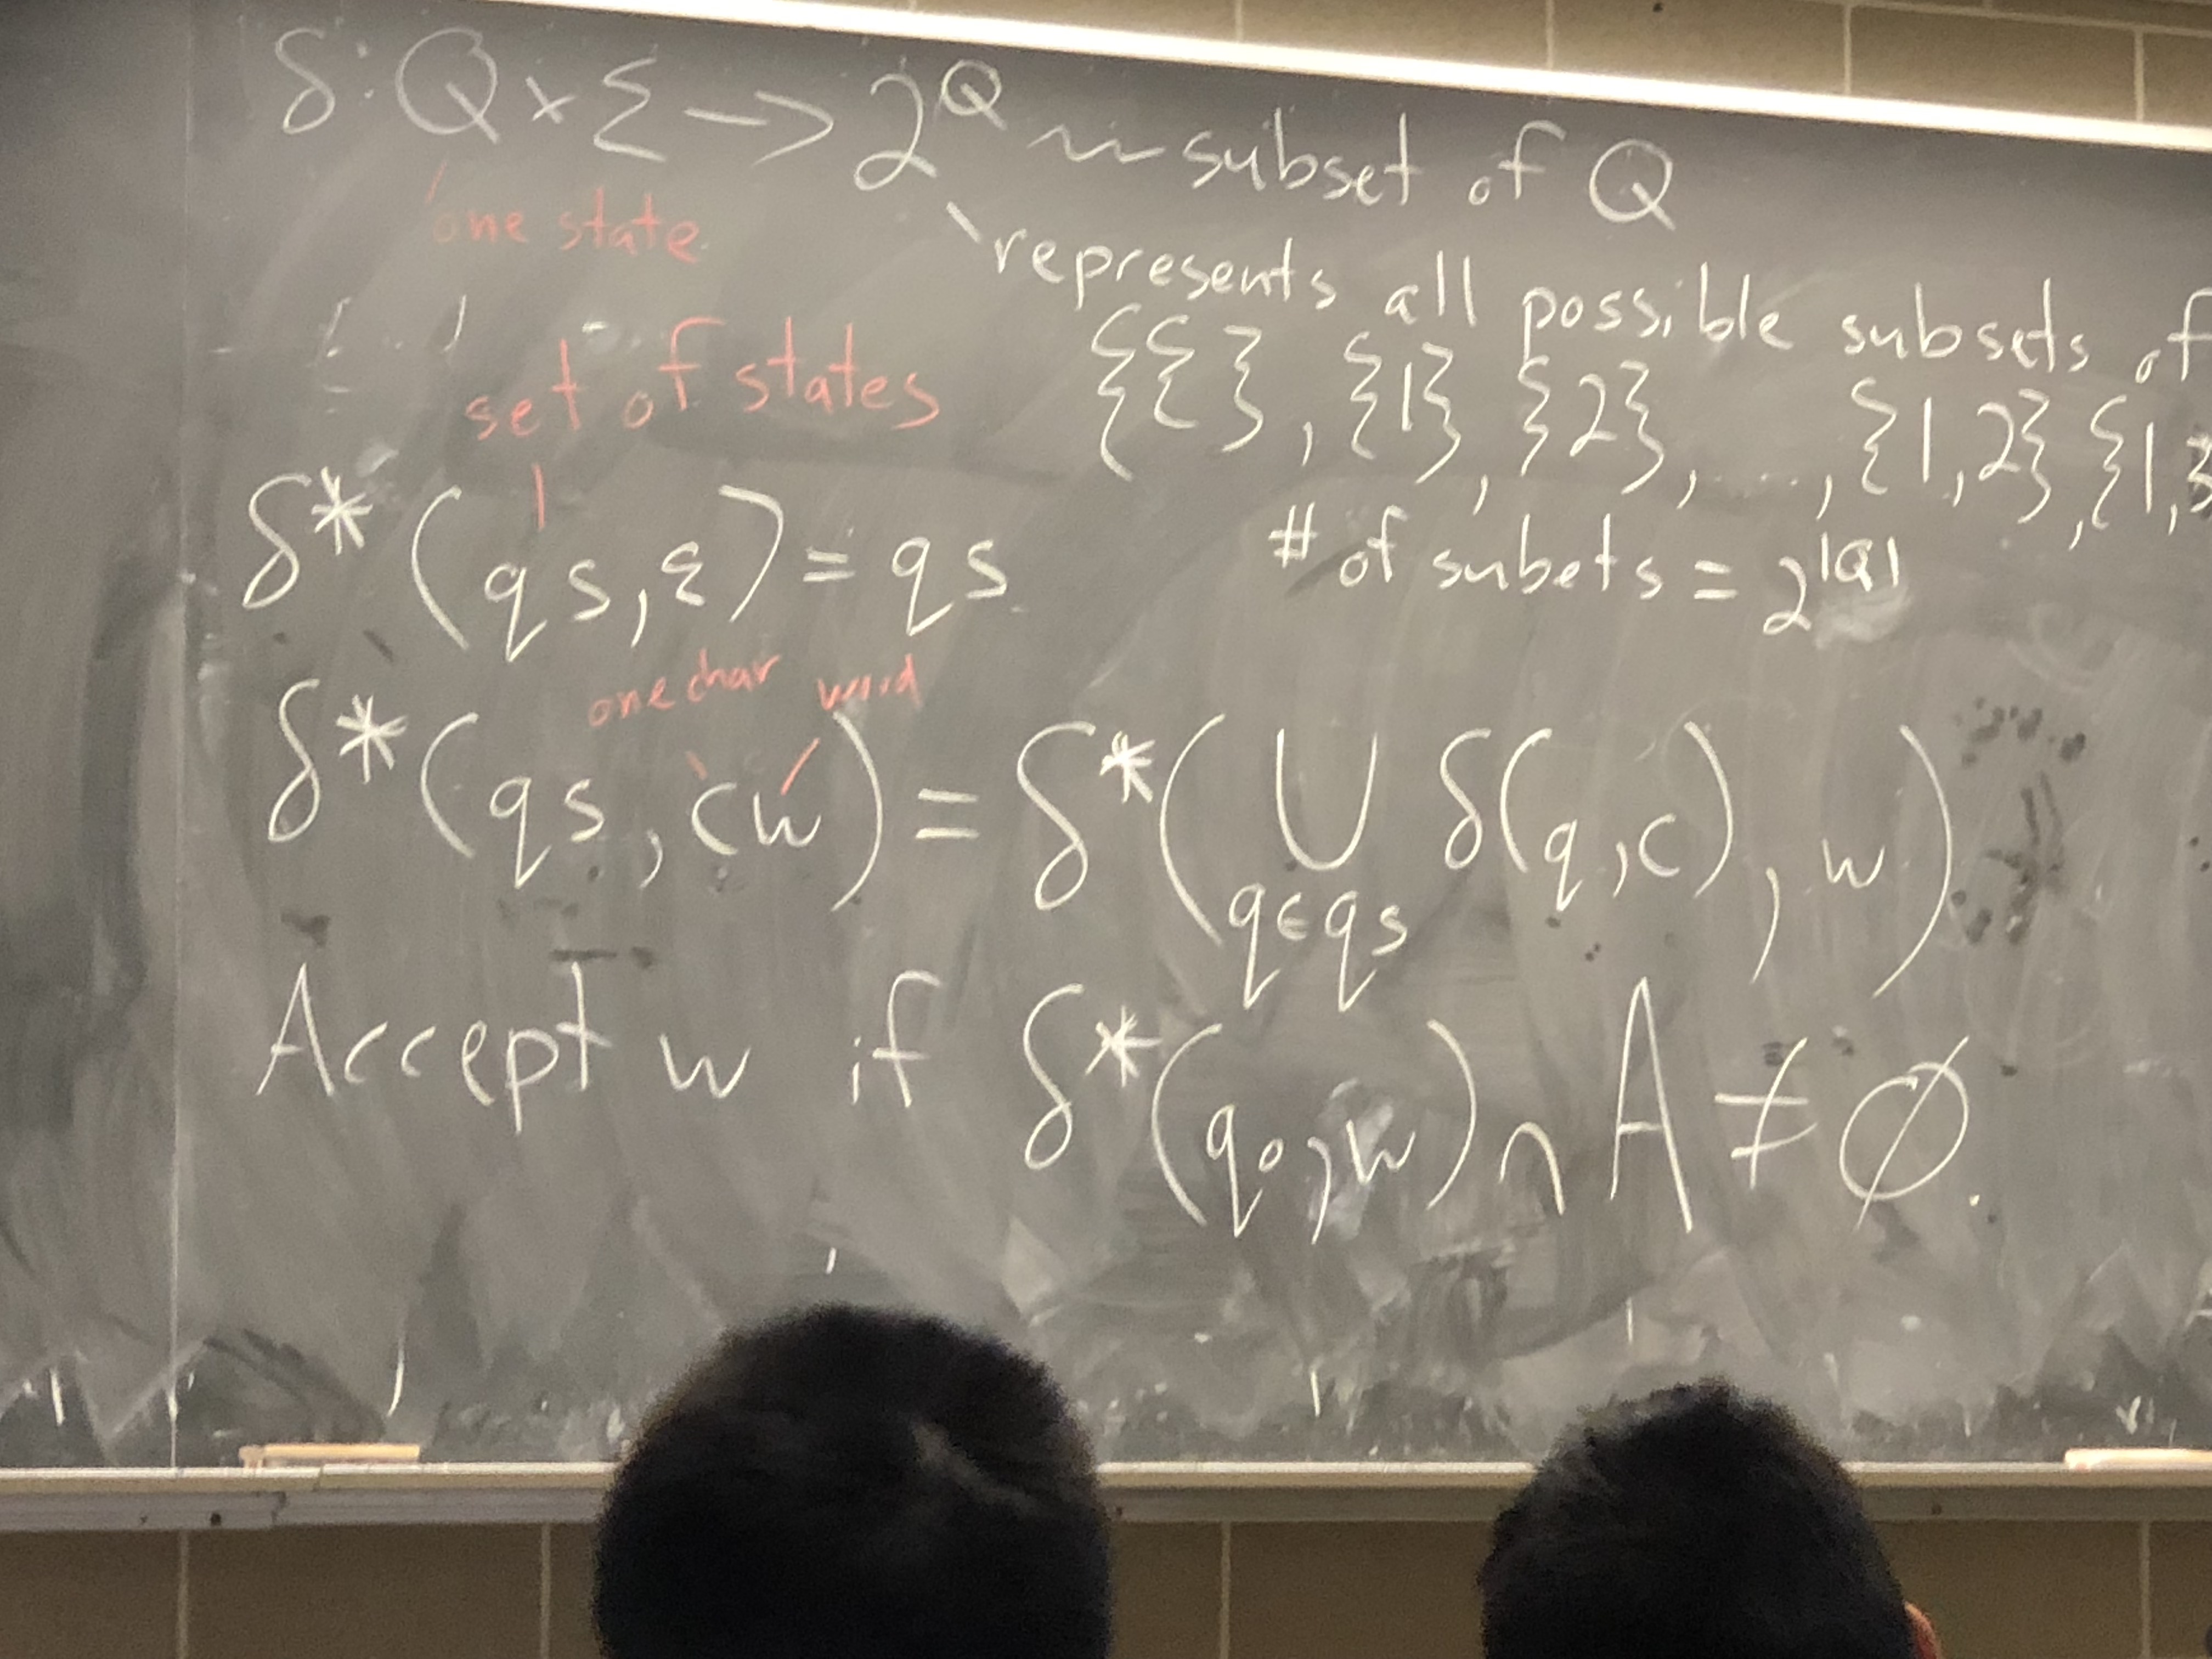 δ: Q × Σ → 2^Q ~ subset of Q
one state
represents all possible subsets of
set of states
{{}, {1}, {2}, ..., {1,2}, {1,3
# of subets = 2^|Q|
δ*(qs, ε) = qs
one char word
δ*(qs, cw) = δ*(⋃_{q∈qs} δ(q,c), w)
Accept w if δ*(q₀, w) ∩ A ≠ ∅.